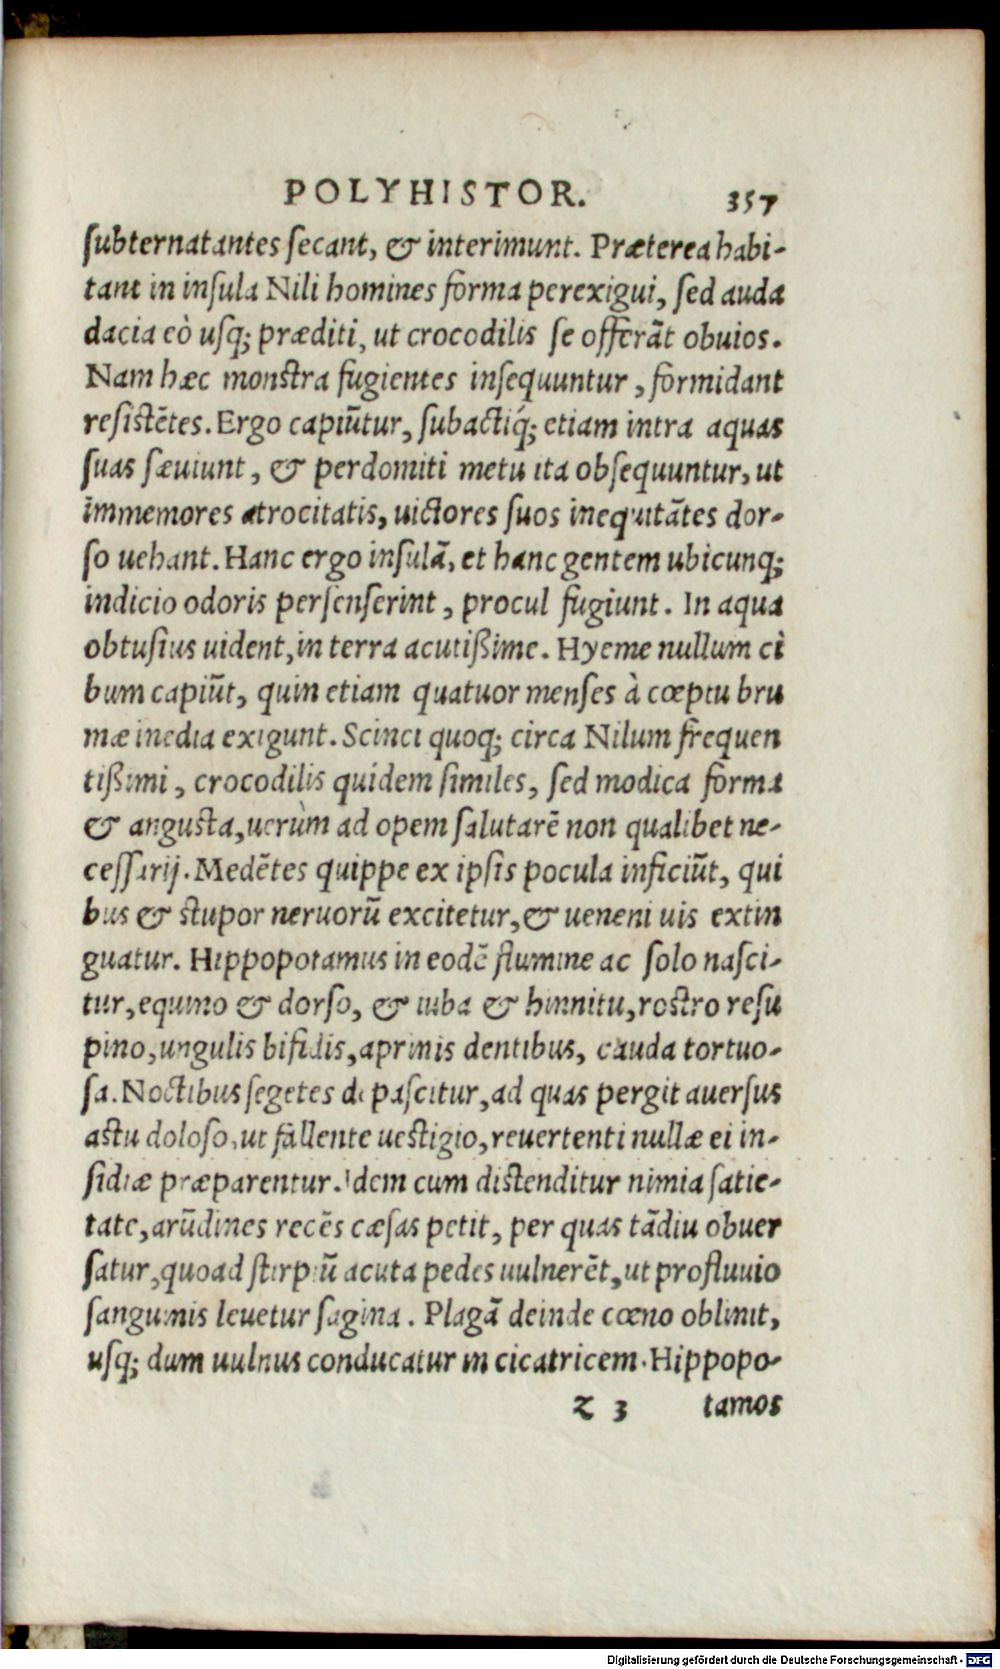 POLYHISTOR. 357
subternatantes secant, & interimunt. Præterea habi-
tant in insula Nili homines forma perexigui, sed auda
dacia eò usq; præditi, ut crocodilis se offerãt obuios.
Nam hæc monstra fugientes insequuntur, formidant
resistẽtes. Ergo capiũtur, subactiq́; etiam intra aquas
suas sæuiunt, & perdomiti metu ita obsequuntur, ut
immemores atrocitatis, uictores suos inequitãtes dor-
so uehant. Hanc ergo insulã, et hanc gentem ubicunq;
indicio odoris persenserint, procul fugiunt. In aqua
obtusius uident, in terra acutißime. Hyeme nullum ci
bum capiũt, quin etiam quatuor menses à cœptu bru
mæ inedia exigunt. Scinci quoq; circa Nilum frequen
tißimi, crocodilis quidem similes, sed modica forma
& angusta, uerùm ad opem salutarẽ non qualibet ne-
cessarij. Medẽtes quippe ex ipsis pocula inficiũt, qui
bus & stupor neruorũ excitetur, & ueneni uis extin
guatur. Hippopotamus in eodẽ flumine ac solo nasci-
tur, equino & dorso, & iuba & hinnitu, rostro resu
pino, ungulis bifidis, aprinis dentibus, cauda tortuo-
sa. Noctibus segetes depascitur, ad quas pergit auersus
astu doloso, ut fallente uestigio, reuertenti nullæ ei in-
sidiæ præparentur. Idem cum distenditur nimia satie-
tate, arũdines recẽs cæsas petit, per quas tãdiu obuer
satur, quoad stirpiũ acuta pedes uulnerẽt, ut profluuio
sanguinis leuetur sagina. Plagã deinde cœno oblinit,
usq; dum uulnus conducatur in cicatricem. Hippopo-
z 3 tamos
Digitalisierung gefördert durch die Deutsche Forschungsgemeinschaft - DFG